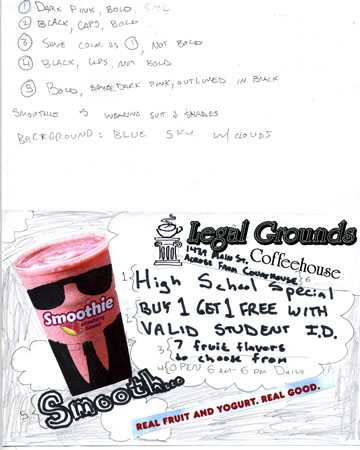 ① DARK PINK, BOLD,
② BLACK, CAPS, BOLD
③ SAME COLOR AS ①, NOT BOLD
④ BLACK, CAPS, NOT BOLD
⑤ BOLD, DARK PINK, OUTLINED IN BLACK
SMOOTHIE IS WEARING SUIT & SHADES
BACKGROUND: BLUE SKY W/ CLOUDS
Legal Grounds
1439 MAIN ST.
ACROSS FROM COURTHOUSE
Coffeehouse
1 { High School Special
2 { BUY 1 GET 1 FREE WITH
VALID STUDENT I.D.
3 { 7 fruit flavors
to choose from
4 { OPEN 6 AM - 6 PM DAILY
Smoothie
Strawberry
Banana
5 Smooth...
REAL FRUIT AND YOGURT. REAL GOOD.